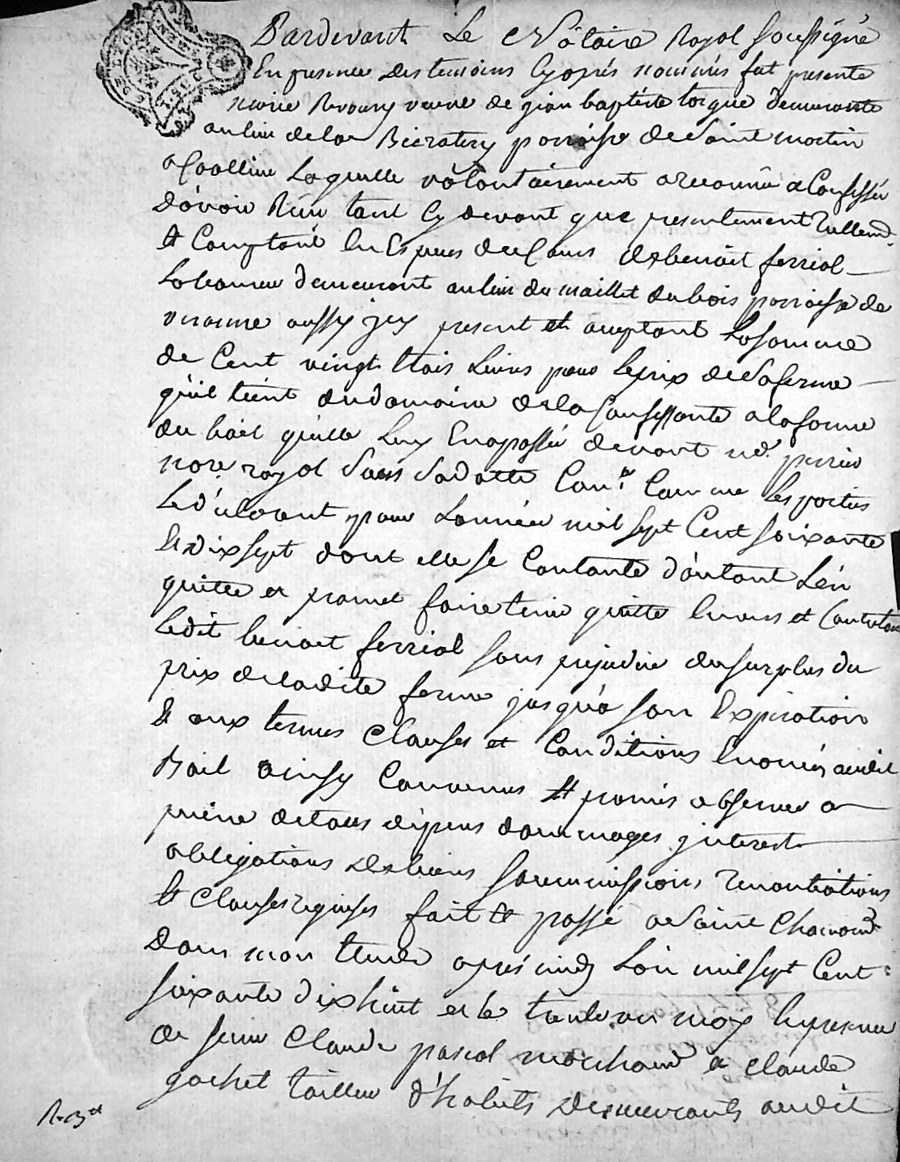 Pardevant Le Nôtaire Royal Soussigné
En presence des temoins cy aprés nommés fut presente
marie Revoury veuve de jean baptiste torgue demeurante
au lieu de la parroisse de Saint martin
a Coallieu Laquelle volontairement a reconnu & Confessé
D'avoir Reçu tant cy devant que presentement Reellemt
et Comptant En Especes de Cours de benoit ferriol
Laboureur demeurant au lieu du maillet du bois parroisse de
aussy jcy present et acceptant La somme
de Cent vingt trois Livres pour Le prix de La ferme
qu'il tient du domaine de la Confessante a la forme
du bail qu'elle Luy En a passé devant me perrier
nore royal Sans Comme Les parties
Le d'eclarent pour L'année mil sept Cent soixante
Et dix sept dont elle se Contante d'autant L'en
quitte et promet faire tenir quitte Envers et Contre tous
Ledit benoit ferriol sans prejudice du surplus du
prix de ladite ferme jusqu'a son Expiration
Et aux termes Clauses et Conditions Enoncés audit
Bail ainsy Convenus et promis observer a
peine de tous dépens dommages jnterests
obligations de biens soummissions renontiations
et Clauses requises fait et passé a Saint Chamond
Dans mon Etude aprés midy L'an mil sept Cent
soixante dix huit et le trente un may En presence
de sieur Claude pascal marchand & Claude
gachet tailleur d'habits demeurants audit